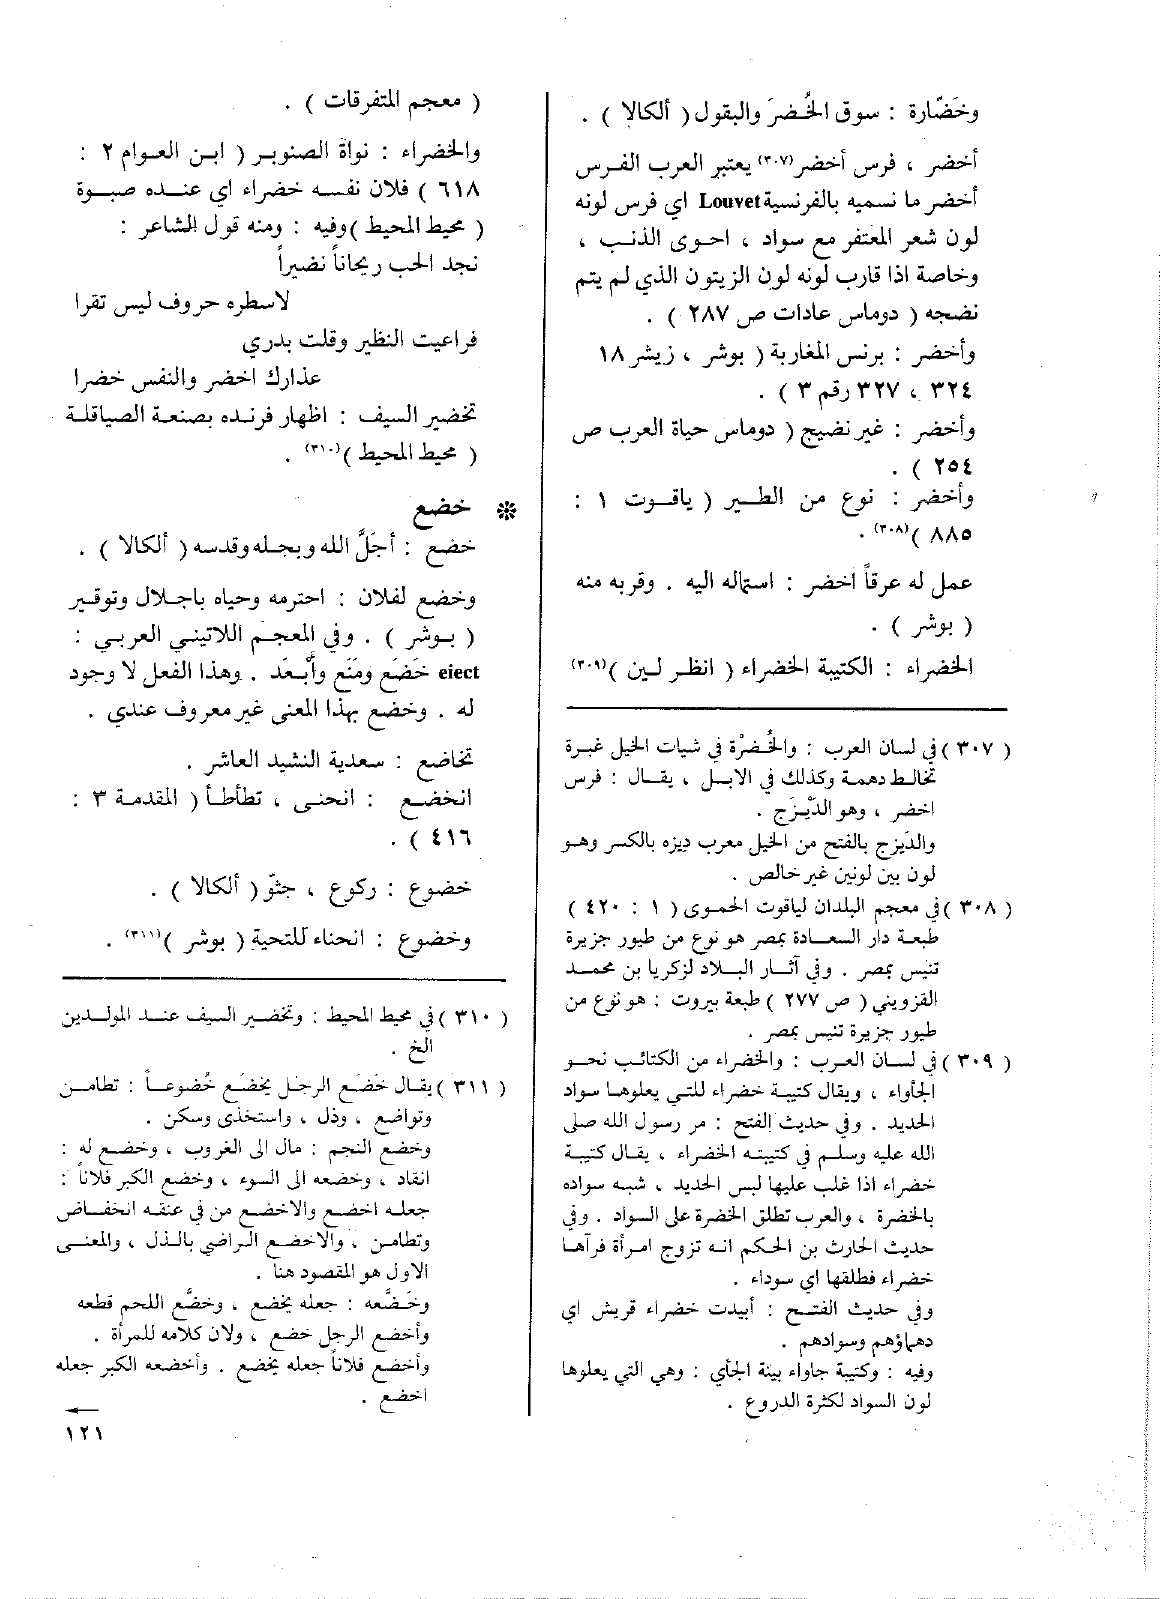 وخَضّارة : سوق الخُضرَ والبقول ( ألكالا ) .
أخضر ، فرس أخضر(٣٠٧) يعتبر العرب الفرس
أخضر ما نسميه بالفرنسية Louvet اي فرس لونه
لون شعر المعتفر مع سواد ، احوى الذنب ،
وخاصة اذا قارب لونه لون الزيتون الذي لم يتم
نضجه ( دوماس عادات ص ٢٨٧ ) .
وأخضر : برنس المغاربة ( بوشر ، زيشر ١٨
٣٢٤ ، ٣٢٧ رقم ٣ ) .
وأخضر : غير نضيج ( دوماس حياة العرب ص
٢٥٤ ) .
وأخضر : نوع من الطير ( ياقوت ١ :
٨٨٥ )(٣٠٨) .
عمل له عرقاً اخضر : استماله اليه . وقربه منه
( بوشر ) .
الخضراء : الكتيبة الخضراء ( انظر لين )(٣٠٩)
( ٣٠٧ ) في لسان العرب : والخُضرْة في شيات الخيل غبرة
تخالط دهمة وكذلك في الابل ، يقال : فرس
اخضر ، وهو الدّيْزَج .
والدَيزج بالفتح من الخيل معرب ديزه بالكسر وهو
لون بين لونين غير خالص .
( ٣٠٨ ) في معجم البلدان لياقوت الحموى ( ١ : ٤٢٠ )
طبعة دار السعادة بمصر هو نوع من طيور جزيرة
تنيس بمصر . وفي آثار البلاد لزكريا بن محمد
القزويني ( ص ٢٧٧ ) طبعة بيروت : هو نوع من
طيور جزيرة تنيس بمصر .
( ٣٠٩ ) في لسان العرب : والخضراء من الكتائب نحو
الجأواء ، ويقال كتيبة خضراء للتي يعلوها سواد
الحديد . وفي حديث الفتح : مر رسول الله صلى
الله عليه وسلم في كتيبته الخضراء ، يقال كتيبة
خضراء اذا غلب عليها لبس الحديد ، شبه سواده
بالخضرة ، والعرب تطلق الخضرة على السواد . وفي
حديث الحارث بن الحكم انه تزوج امرأة فرآها
خضراء فطلقها اي سوداء .
وفي حديث الفتح : أبيدت خضراء قريش اي
دهماؤهم وسوادهم .
وفيه : وكتيبة جاواء بينة الجأي : وهي التي يعلوها
لون السواد لكثرة الدروع .
( معجم المتفرقات ) .
والخضراء : نواة الصنوبر ( ابن العوام ٢ :
٦١٨ ) فلان نفسه خضراء اي عنده صبوة
( محيط المحيط ) وفيه : ومنه قول الشاعر :
نجد الحب ريحاناً نضيراً
لاسطره حروف ليس تقرا
فراعيت النظير وقلت بدري
عذارك اخضر والنفس خضرا
تخضير السيف : اظهار فرنده بصنعة الصياقلة
( محيط المحيط )(٣١٠) .
❊ خضع
خضع : أجَلَّ الله وبجله وقدسه ( ألكالا ) .
وخضع لفلان : احترمه وحياه باجلال وتوقير
( بوشر ) . وفي المعجم اللاتيني العربي :
eiect خَضَع ومَنَع وأبْعَد . وهذا الفعل لا وجود
له . وخضع بهذا المعنى غير معروف عندي .
تخاضع : سعدية النشيد العاشر .
انخضع : انحنى ، تطأطأ ( المقدمة ٣ :
٤١٦ ) .
خضوع : ركوع ، جثوّ ( ألكالا ) .
وخضوع : انحناء للتحية ( بوشر )(٣١١) .
( ٣١٠ ) في محيط المحيط : وتخضير السيف عند المولدين
الخ .
( ٣١١ ) يقال خَضَع الرجل يخضَع خُضوعاً : تطامن
وتواضع ، وذل ، واستخذى وسكن .
وخضع النجم : مال الى الغروب ، وخضع له :
انقاد ، وخضعه الى السوء ، وخضع الكبر فلاناً :
جعله اخضع والاخضع من في عنقه انخفاض
وتطامن ، والاخضع الراضي بالذل ، والمعنى
الاول هو المقصود هنا .
وخَضَّعه : جعله يخضع ، وخضَّع اللحم قطعه
وأخضع الرجل خضع ، ولان كلامه للمرأة .
وأخضع فلاناً جعله يخضع . وأخضعه الكبر جعله
اخضع .
←
١٢١